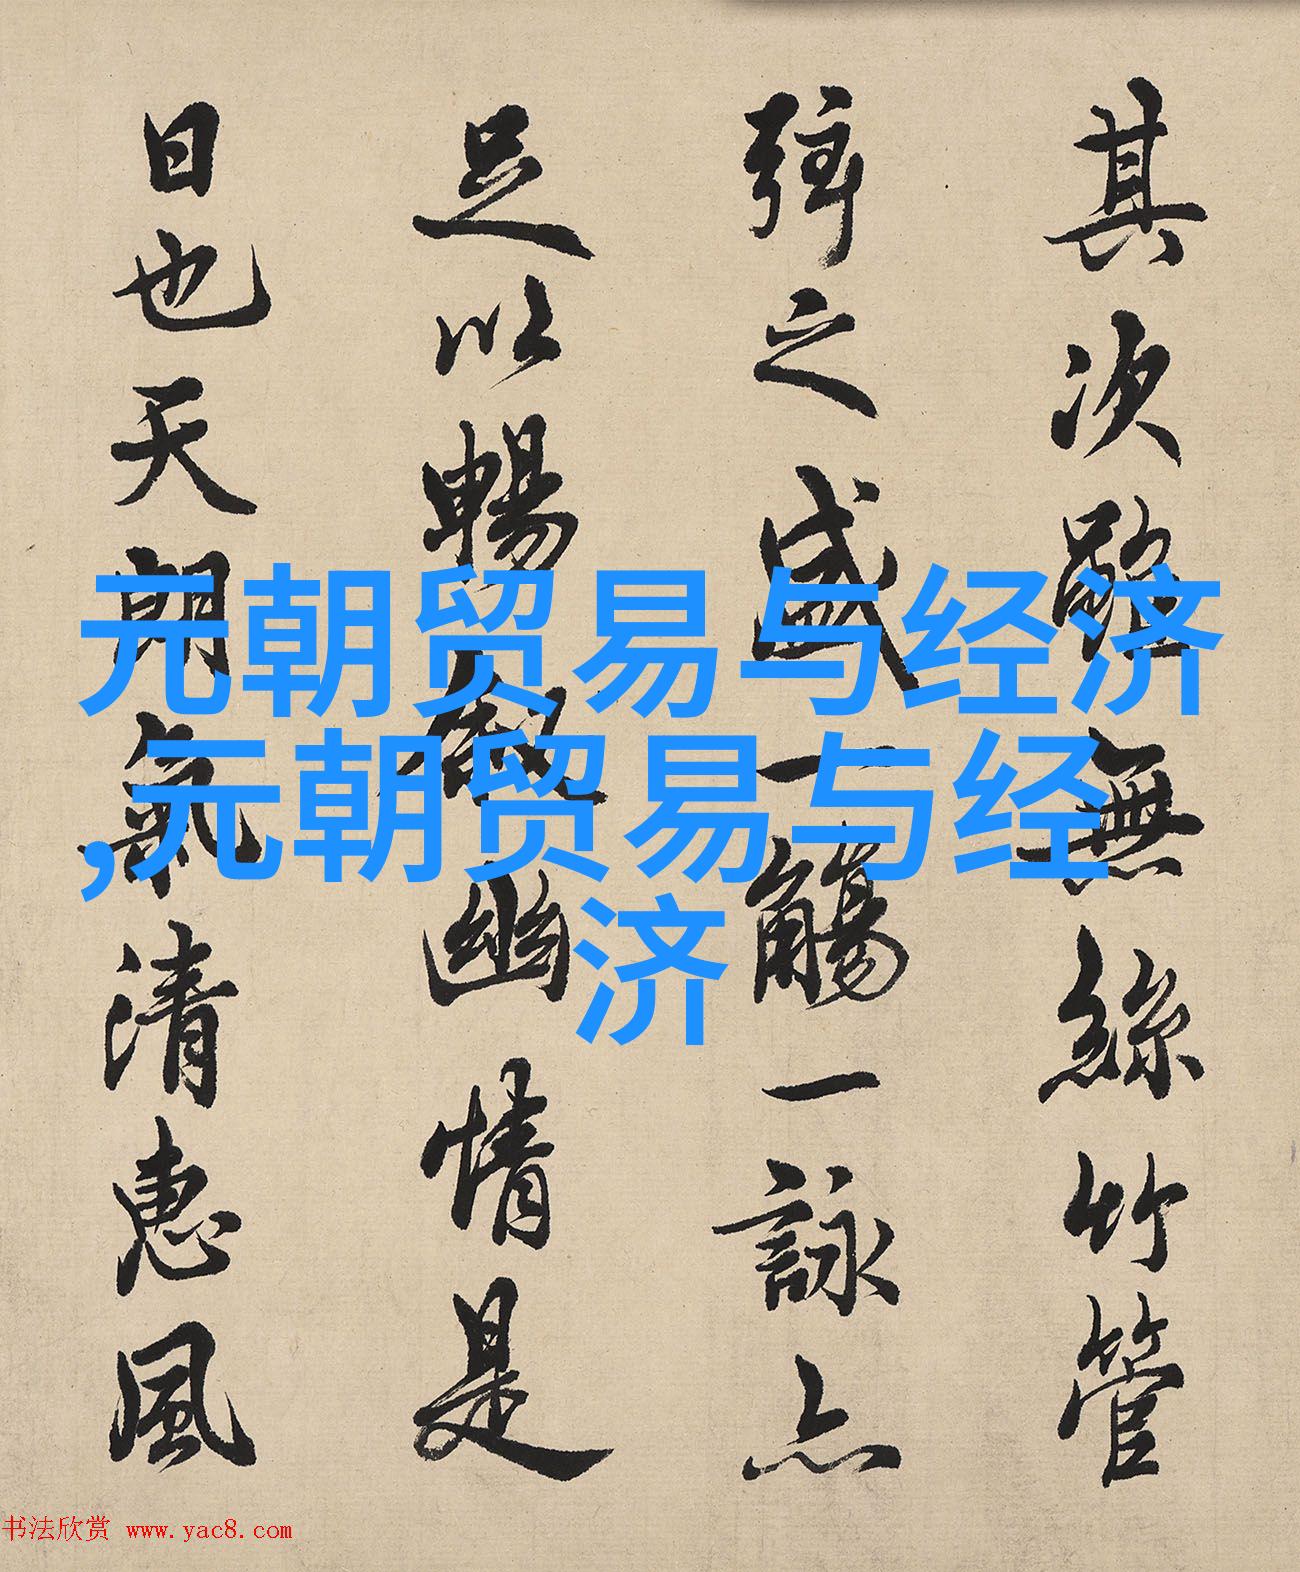 元朝贸易与经济
,元朝贸易与经
济
其次雖無絲竹管
弦之盛一觴一詠亦
足以暢敘幽情是
日也天朗氣清惠風
书法欣赏 www.yac8.com